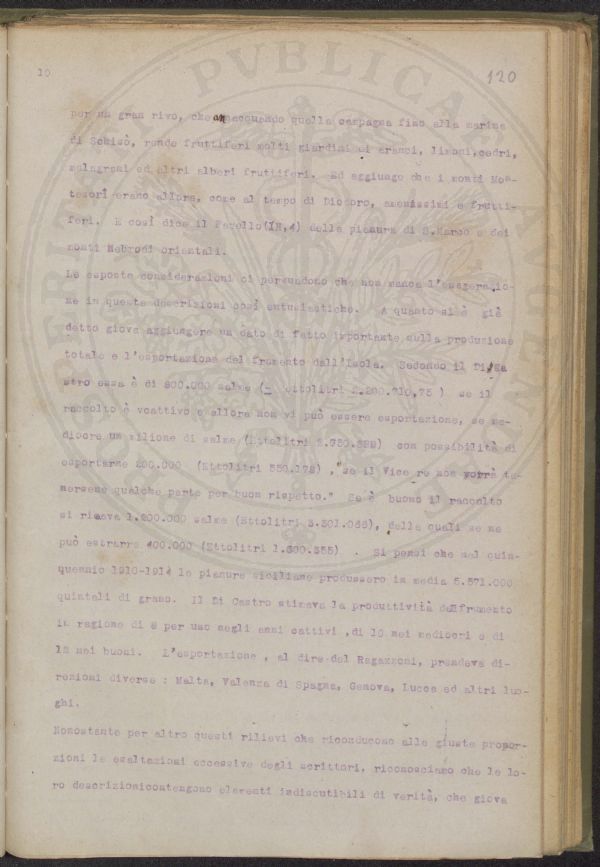 10
120
per un gran rivo, che annacquando quella campagna fino alla marina
di Schisò, rende fruttiferi molti giardini di aranci, limoni,cedri,
melagrani ed altri alberi fruttiferi. Ed aggiunge che i monti Mon-
tesori erano allora, come al tempo di Diodoro, amenissimi e frutti-
feri. E così dice il Fazello(IX,4) della pianura di S.Marco e dei
monti Nebrodi orientali.
Le esposte considerazioni ci persuadono che non manca l'esagerazio-
ne in queste descrizioni così entusiastiche. A quanto si è già
detto giova aggiungere un dato di fatto importante sulla produzione
totale e l'esportazione del frumento dall'Isola. Secondo il Di Ca
stro essa è di 800.000 salme ( ettolitri 2.200.710,75 ) se il
raccolto è cattivo e allora non vi può essere esportazione, se me-
diocre un milione di salme (Ettolitri 2.750.888) con possibilità di
esportarne 200.000 (Ettolitri 550.178) , "se il Vice re non vorrà te-
nersene qualche parte per buon rispetto." Se è buono il raccolto
si ricava 1.200.000 salme (Ettolitri 3.301.066), delle quali se ne
può estrarre 400.000 (Ettolitri 1.100.355) . Si pensi che nel quin-
quennio 1910-1914 le pianure siciliane produssero in media 5.571.000
quintali di grano. Il Di Castro stimava la produttività del frumento
in ragione di 8 per uno negli anni cattivi ,di 10 nei mediocri e di
12 nei buoni. L'esportazione , al dire del Ragazzoni, prendeva di-
rezioni diverse : Malta, Valenza di Spagna, Genova, Lucca ed altri luo-
ghi.
Nonostante per altro questi rilievi che riconducono alle giuste propor-
zioni le esaltazioni eccessive degli scrittori, riconosciamo che le lo-
ro descrizionicontengono elementi indiscutibili di verità, che giova